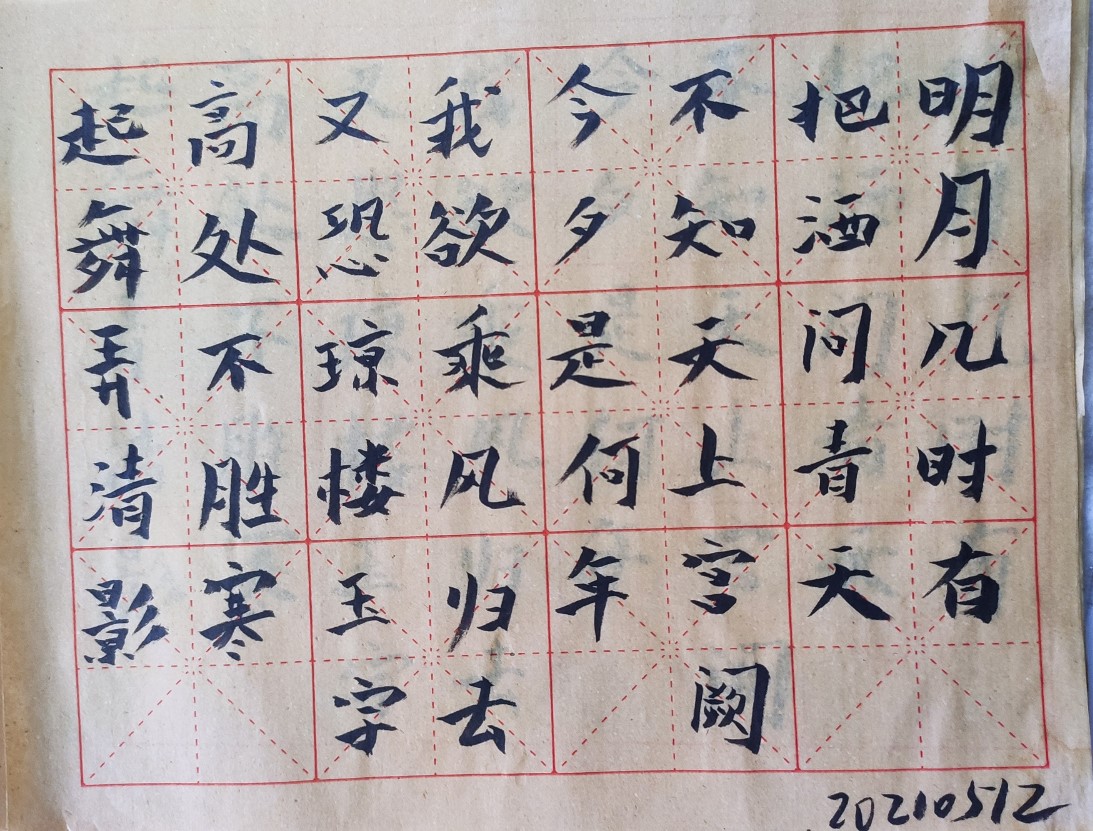 明月几时有
把酒问青天
不知天上宫阙
今夕是何年
我欲乘风归去
又恐琼楼玉字
高处不胜寒
起舞弄清影
20210512